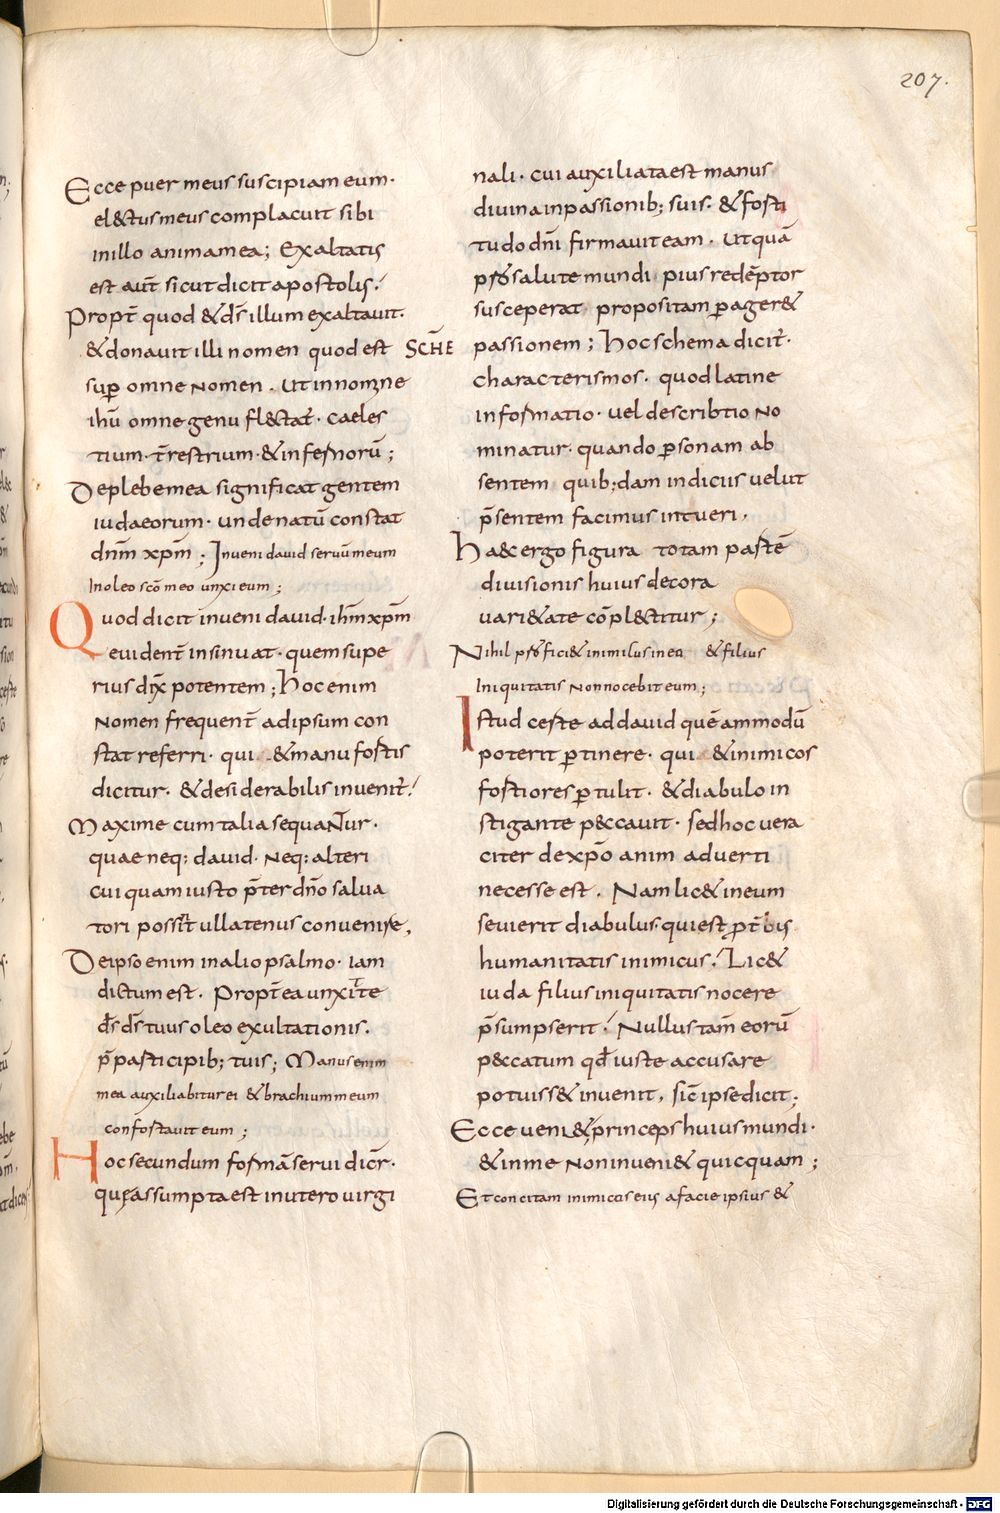 207.
Ecce puer meus suscipiam eum·
el&tus meus complacuit sibi
in illo anima mea; Exaltatis
est aut̄ sicut dicit apostolis!
Propt̄ quod & d̄s illum exaltauit·
& donauit illi nomen quod est
sup̄ omne nomen. Ut in nomine
ihū omne genu fl&tat̄· caeles
tium· t̄restrium· & infernorū;
De plebe mea significat gentem
iudaeorum· unde natū constat
dn̄m xp̄m; Inueni dauid seruū meum
In oleo sc̄o meo unxi eum;
Quod dicit inueni dauid· ihm̄ xp̄m
euident̄ insinuat· quem supe
rius dix̄ potentem; Hoc enim
nomen frequent̄ ad ipsum con
stat referri· qui & manu fortis
dicitur· & desiderabilis inuenit̄!
Maxime cum talia sequantur·
quae neq; dauid· neq; alteri
cuiquam iusto p̄ter dn̄o salua
tori possit ullatenus conuenire,
De ipso enim in alio psalmo· iam
dictum est. Propt̄ea unxit te
d̄s d̄s tuus oleo exultationis.
p̄ participib; tuis; Manus enim
mea auxiliabitur ei & brachium meum
confortauit eum;
Hoc secundum formā serui dicit̄·
quę assumpta est in utero uirgi
SCHE
nali· cui auxiliata est manus
diuina in passionib; suis· & forti
tudo dn̄i firmauit eam· ut quā
pro salute mundi pius redēptor
susceperat propositam p̄ager&
passionem; Hoc schema dicit̄·
characterismos· quod latine
informatio· uel describtio no
minatur· quando p̄sonam ab
sentem quib;dam indiciis uelut
p̄sentem facimus intueri.
Haec ergo figura totam partē
diuisionis huius decora
uari&ate cōpl&titur;
Nihil profici& inimicus in eo & filius
Iniquitatis non nocebit eum;
Istud certe ad dauid quēammodū
poterit p̄tinere· qui & inimicos
fortiores p̄tulit· & diabulo in
stigante p&cauit· sed hoc uera
citer de xp̄o anim aduerti
necesse est. Nam lic& in eum
seuierit diabulus· qui est p̄t̄ bis
humanitatis inimicus! Lic&
iuda filius iniquitatis nocere
p̄sumpserit! Nullus tam̄ eorū
p&catum qd̄ iuste accusare
potuiss& inuenit, sic̄ ipse dicit;
Ecce ueni& princeps huius mundi·
& in me non inueni& quicquam;
Et concidam inimicos eius a facie ipsius &
Digitalisierung gefördert durch die Deutsche Forschungsgemeinschaft - DFG